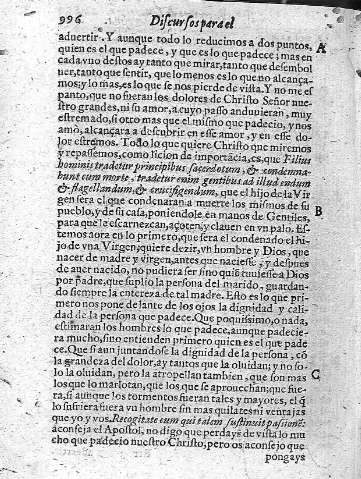 996 Discursos para el
aduertir. Y aunque todo lo reducimos a dos puntos,
quien es el que padece, y que es lo que padece; mas en
cada vno destos ay tanto que mirar, tanto que desembol
uer, tanto que sentir, que lo menos es lo que no alcança-
mos; y lo mas, es lo que se nos pierde de vista. Y no me es
panto, que no fueran los dolores de Christo Señor nue-
stro grandes, ni su amor, a cuyo passo anduuieran, muy
estremado, si otro mas que el mismo que padecio, y nos
amò, alcançara a descubrir en esse amor, y en esse do-
lor estremos. Todo lo que quiere Christo que miremos
y repassemos, como licion de importācia, es, que Filius
hominis tradetur principibus sacerdotum, & condemna-
bunt eum morte, tradetur enim gentibus ad illudendum
& flagellandum, & crucifigendum, que el hijo de la Vir
gen sera el que condenaran a muerte los mismos de su
pueblo, y de su casa, poniendole en manos de Gentiles,
para que le escarnezcan, açoten, y clauen en vn palo. Es-
temos aora en lo primero, que sera el condenado el hi-
jo de vna Virgen, quiere dezir, vn hombre y Dios, que
nacer de madre y virgen, antes que naciesse, y despues
de auer nacido, no pudiera ser sino quiē tuuiesse a Dios
por padre, que suplio la persona del marido, guardan-
do siempre la entereza de tal madre. Esto es lo que pri-
mero nos pone delante de los ojos la dignidad y cali-
dad de la persona que padece. Que poquissimo, o nada,
estimaran los hombres lo que padece, aunque padecie-
ra mucho, sino entienden primero quien es el que pade
ce. Que si aun juntandose la dignidad de la persona, cō
la grandeza del dolor, ay tantos que la oluidan; y no so-
lo la oluidan, pero la atropellan tambien, que son mas
los que lo marlotan, que los que se aprouechan; que fue-
ra, si aunque los tormentos fueran tales y mayores, el q̄
lo sufriera fuera vn hombre sin mas quilates ni ventajas
que yo y vos. Recogitate eum qui talem sustinuit passionē:
aconseja el Apostol, no digo que perdays de vista lo mu
cho que padecio nuestro Christo, pero os aconsejo que
pongays
A
B
C